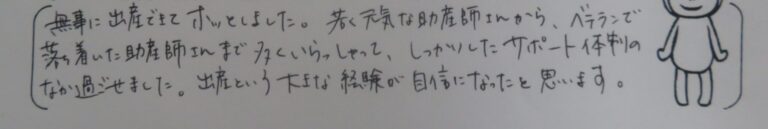 無事に出産できてホッとしました。若く元気な助産師さんから、ベテランで
落ち着いた助産師さんまで多くいらっしゃって、しっかりしたサポート体制の
なか過ごせました。出産という大きな経験が自信になったと思います。